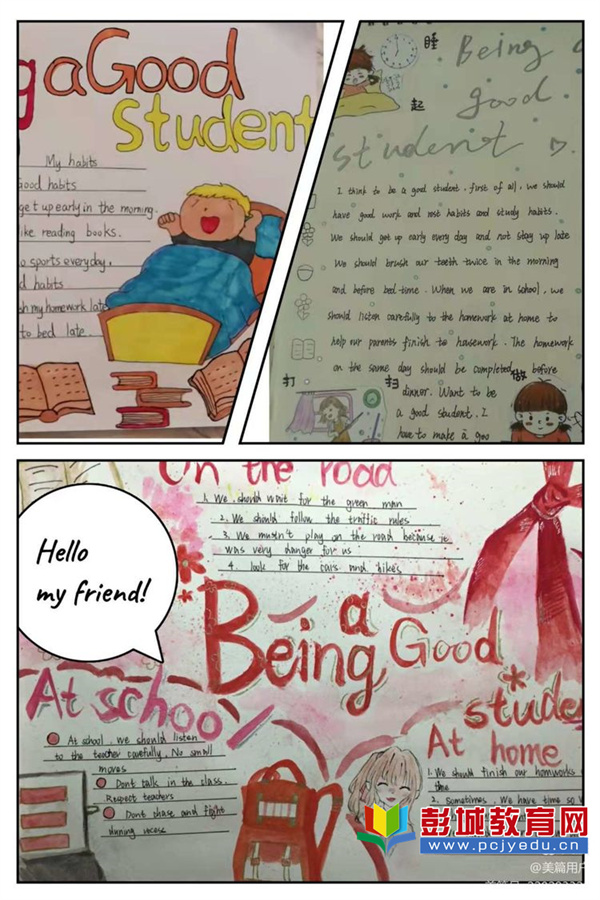 g a Good
Student
My habits
ood habits
get up early in the morning.
ike reading books.
o sports everyday.
d habits
sh my homework late
to bed late
睡
起
Being a
good
student
I think to be a good student, first of all, we should
have good work and rest habits and study habits.
We should get up early every day and not stay up late
We should brush our teeth twice in the morning
and before bed-time. When we are in school, we
should listen carefully to the homework at home to
help our parents finish to housework. The homework
on the same day should be completed before
打
扫
做
dinner. Want to be
a good student. I
have to make a goo
On the road
1. We should wait for the green man
2. We should follow the traffic rules
3. We mustn't play on the road because it
was very danger for us
4. look for the cars and bike's
Hello
my friend!
Being a Good
stude
At school
At school, we should listen
to the teacher carefully. No small
moves
Dont talk in the class.
Respect teachers
Dont chase and fight
during recess
At home
1. We should finish our homworks
time
2. Sometimes, We have time so w
彭城教育网
www.pcjyedu.cn
@美篇用户